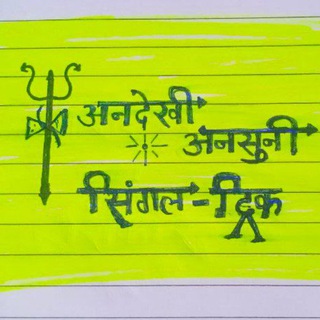 अनदेखी
अनसुनी
सिंगल-ट्रिक